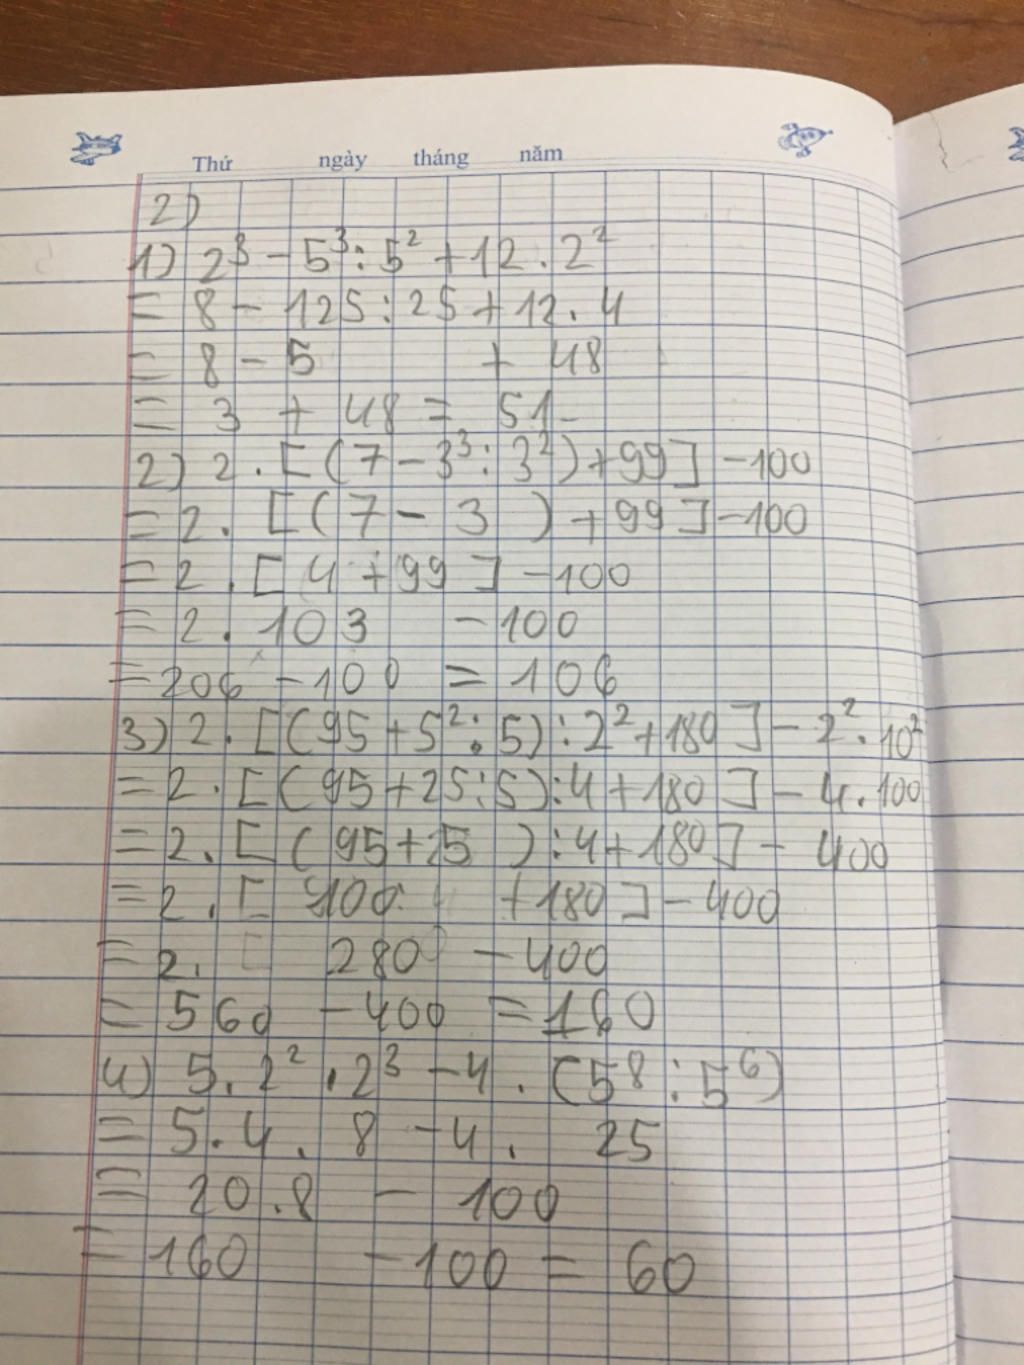 Thứ ngày tháng năm
2)
1) 2³ - 5³ : 5² + 12 . 2²
= 8 - 125 : 25 + 12 . 4
= 8 - 5 + 48
= 3 + 48 = 51
2) 2 . [(7 - 3³ : 3²) + 99] - 100
= 2 . [(7 - 3) + 99] - 100
= 2 . [4 + 99] - 100
= 2 . 103 - 100
= 206 - 100 = 106
3) 2 . [(95 + 5² : 5) : 2² + 180] - 2² . 10²
= 2 . [(95 + 25 : 5) : 4 + 180] - 4 . 100
= 2 . [(95 + 5) : 4 + 180] - 400
= 2 . [100 + 180] - 400
= 2 . 280 - 400
= 560 - 400 = 160
4) 5 . 2² . 2³ - 4 . (5⁸ : 5⁶)
= 5 . 4 . 8 - 4 . 25
= 20 . 8 - 100
= 160 - 100 = 60